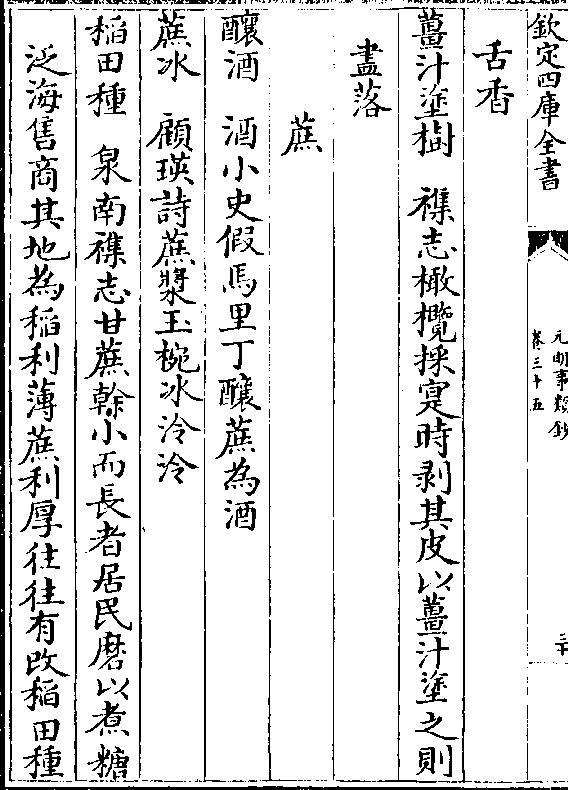 欽定四庫全書
元明事類鈔
卷三十五
舌香
薑汁塗樹　襍志橄欖採寔時剥其皮以薑汁塗之則
盡落
蔗
釀酒　酒小史假馬里丁釀蔗為酒
蔗冰　顧瑛詩蔗漿玉椀冰泠泠
稻田種　泉南襍志甘蔗幹小而長者居民磨以煮糖
泛海售商其地為稻利薄蔗利厚往往有改稻田種